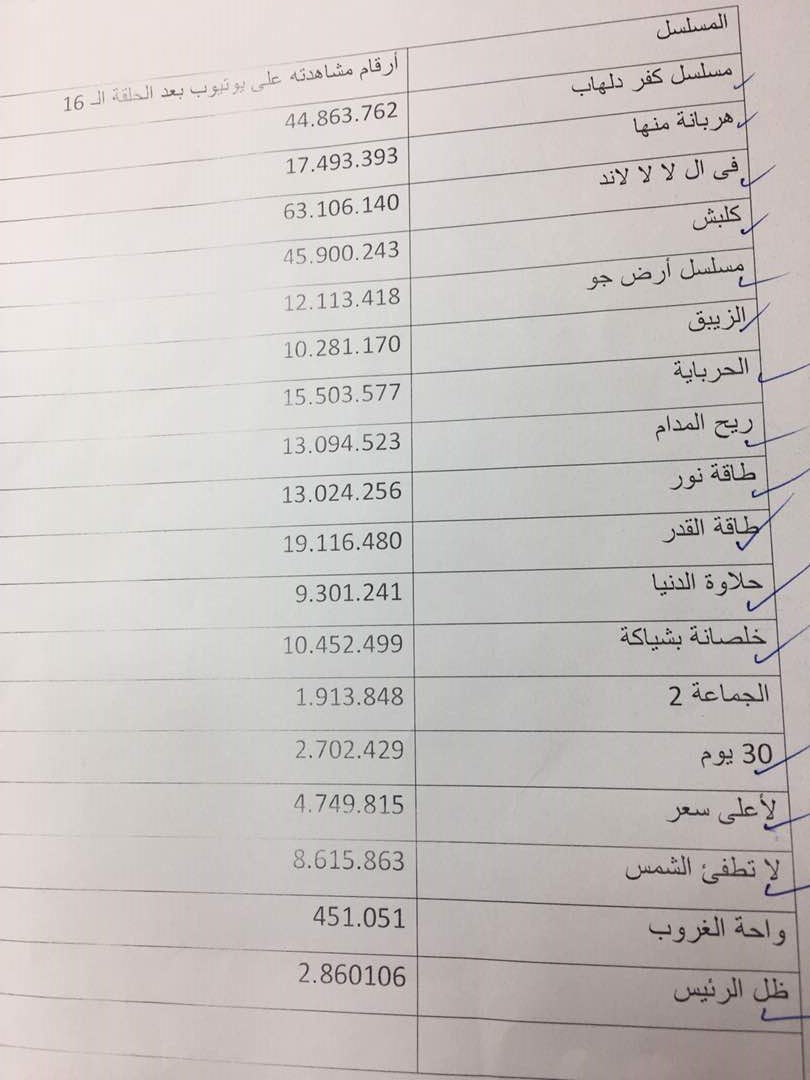 المسلسل أرقام مشاهدته على يوتيوب بعد الحلقة الـ 16
مسلسل كفر دلهاب 44.863.762
هربانة منها 17.493.393
فى ال لا لا لاند 63.106.140
كلبش 45.900.243
مسلسل أرض جو 12.113.418
الزيبق 10.281.170
الحرباية 15.503.577
ريح المدام 13.094.523
طاقة نور 13.024.256
طاقة القدر 19.116.480
حلاوة الدنيا 9.301.241
خلصانة بشياكة 10.452.499
الجماعة 2 1.913.848
30 يوم 2.702.429
لأعلى سعر 4.749.815
لا تطفئ الشمس 8.615.863
واحة الغروب 451.051
ظل الرئيس 2.860106